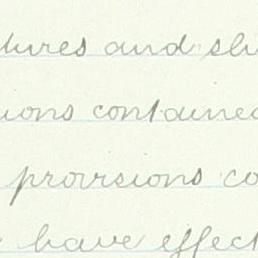 tures and sli
ions contained
provisions co
have effect